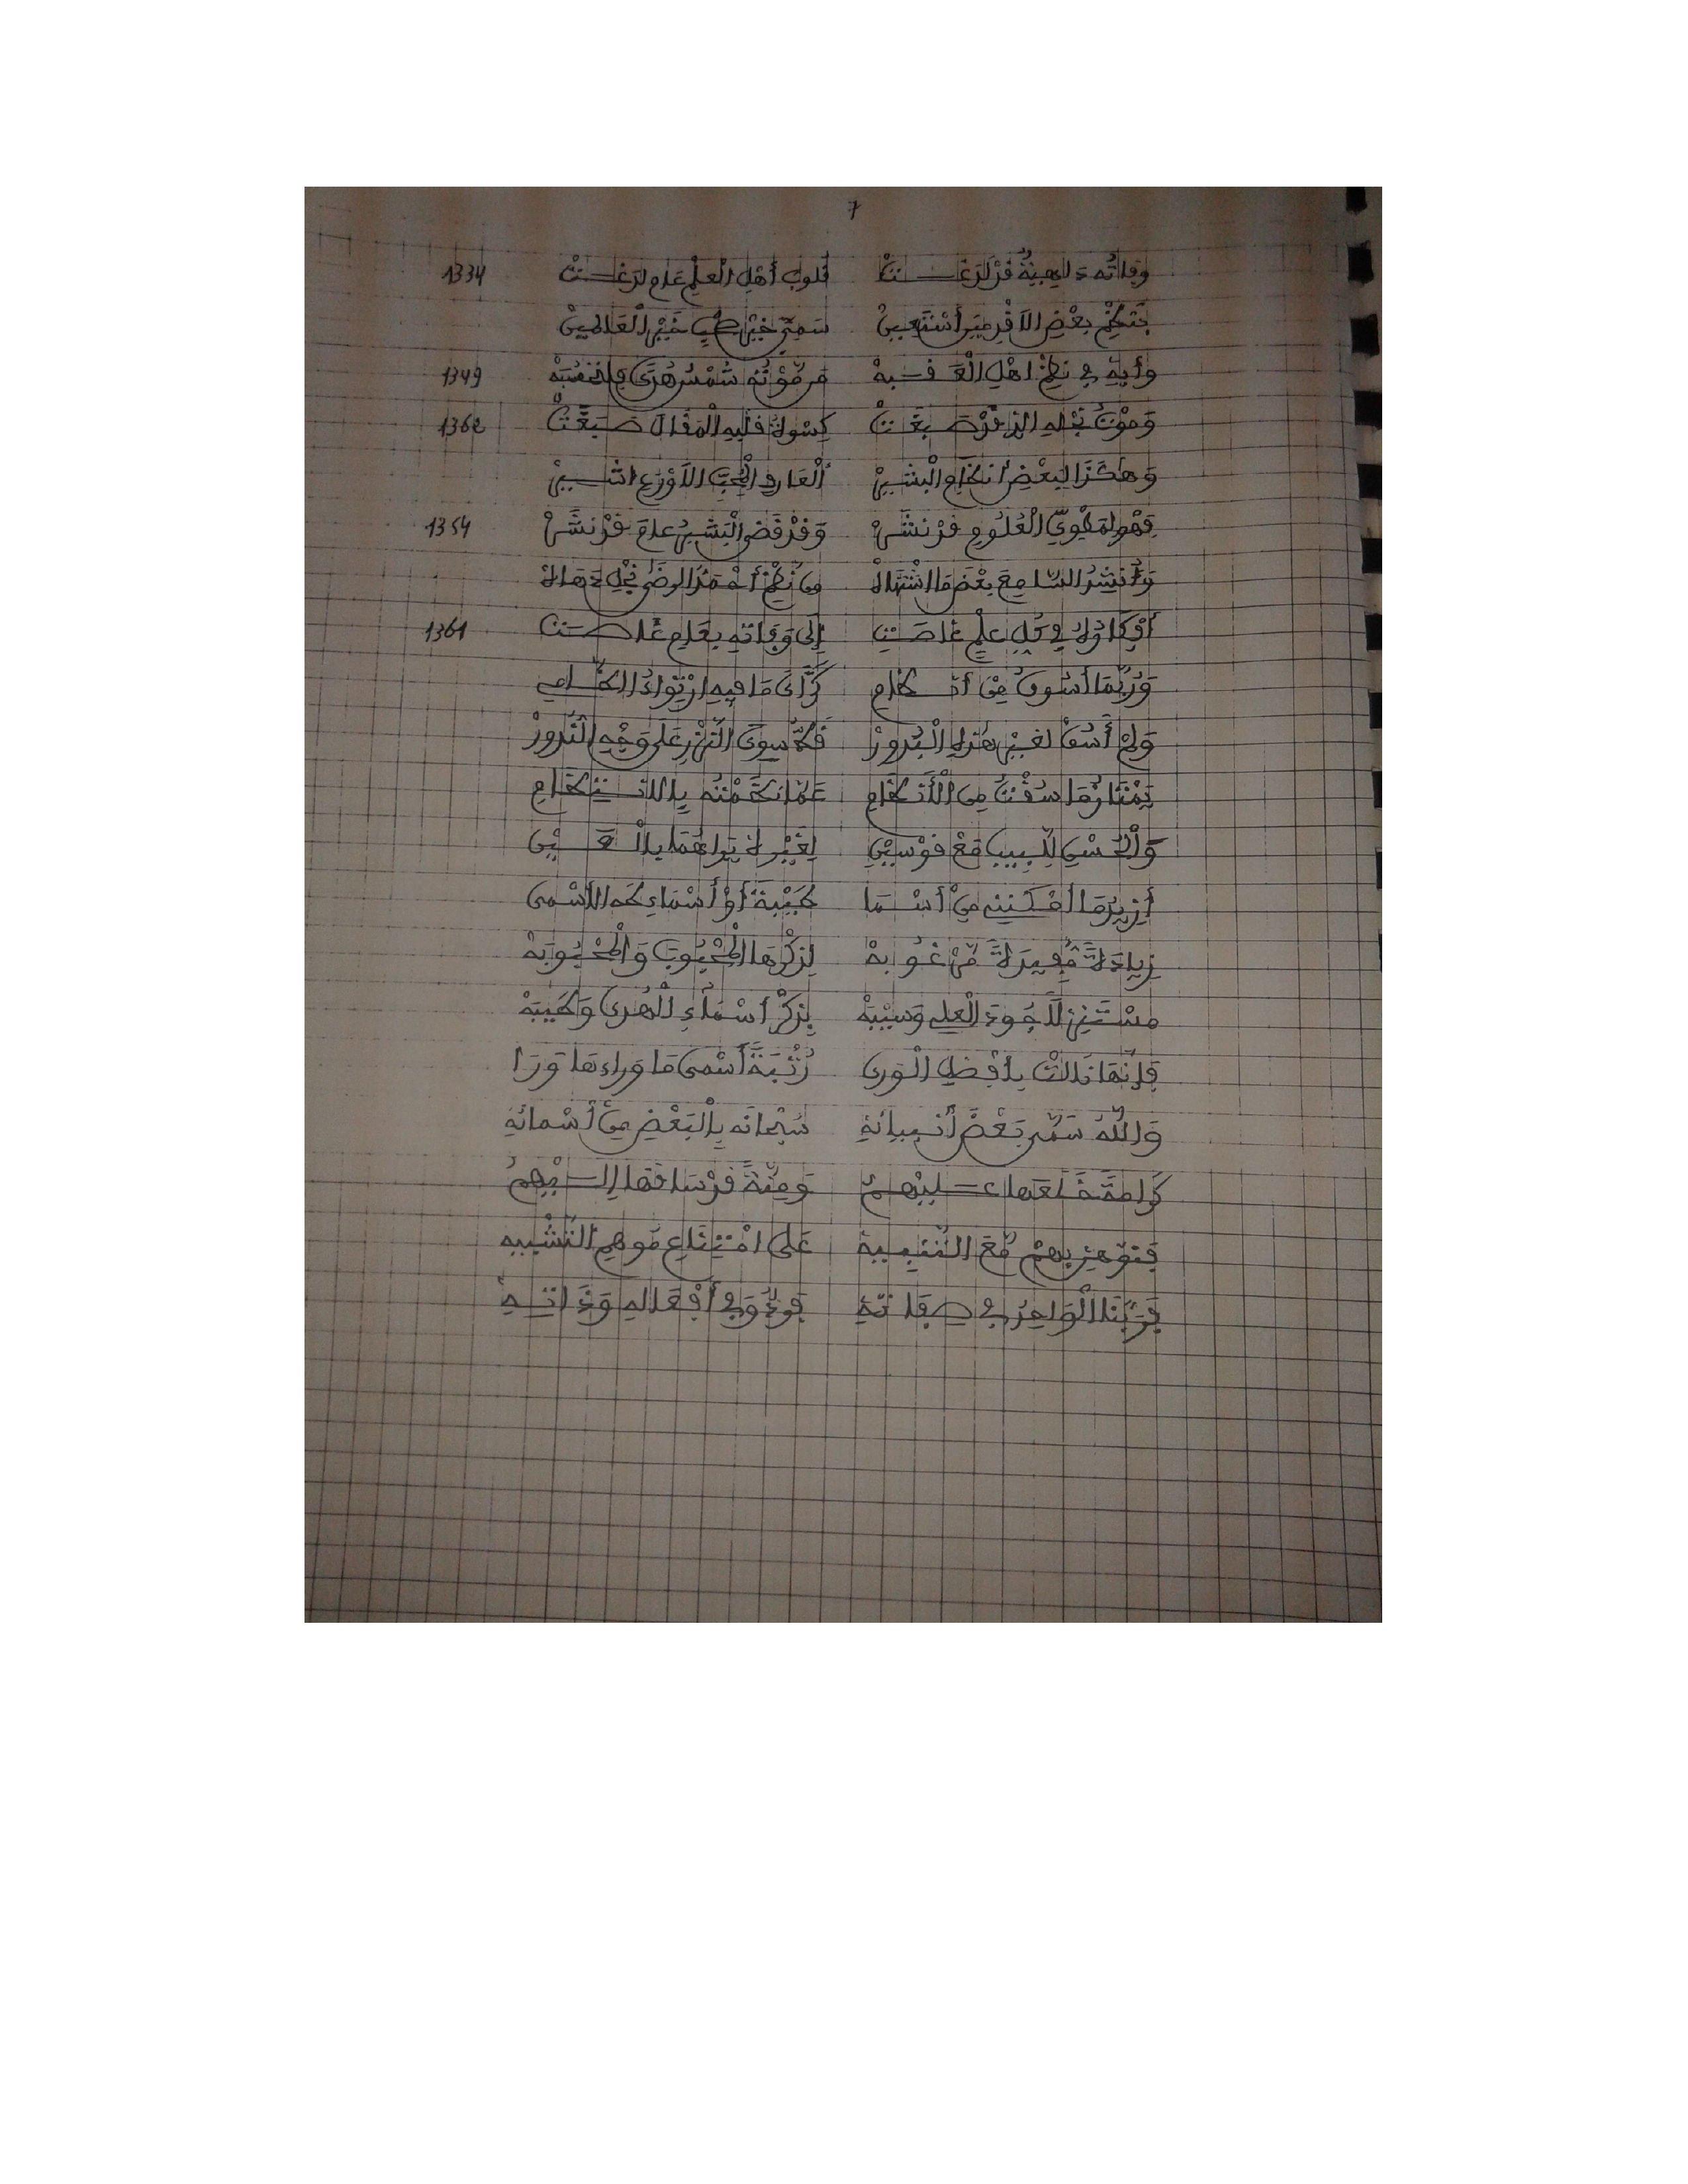 7
وفاته داهية قد لدغت قلوب أهل العلم عام لدغت 1334
بنظم بعض الأقدمين أستعين سمي خير طب خير العالمين
وأبه في نظم اهل العقبه من موته شمس هدى 1349
وموت نجله الذي قد صبغت كسوة قلبه المقال صبغت 1362
وهكذا لبعض أنظام البشير العارف المحب الأورع
فهو لمطوي العلوم قد نشر وقد قضى البشير عام قد نشر 1354
وأنشد السامع بعض ما اشتهاه من نظم أحمد الرضى نجل
أفكاره في كل علم غاصت إلى وفاته بعام غاصت 1361
وربما أسوق من أنظامي كذاك ما فيه ارتواء الظامي
ولم أسق لغير هذه البدور فكا سوى النزر على وجه الندور
يمتاز ما سقت من الأنظام عما نظمته بالانتظام
والحسن للبيب مع قوسين لغير لم يراهما بالعين
أزيد ما أمكنني من أسما طيبة أو أسماء طه الأسمى
زيادة مفيدة مرغوبه لذكرها المحبوب والمحبوبه
مستنزلا جود العلي وسيبه بذكر أسماء الهدى وطيبه
فإنها نالت بأفضل الورى رتبة أسمى ما وراءها ورا
والله سمى بعض أنبيائه سبحانه بالبعض من أسمائه
كرامة خلعها عليهم ومنة قد ساقها إليهم
فنوهن بهم مع التنبيه على امتناع موهم التشبيه
فربنا الواحد في صفاته قولي وفي أفعاله وذاته